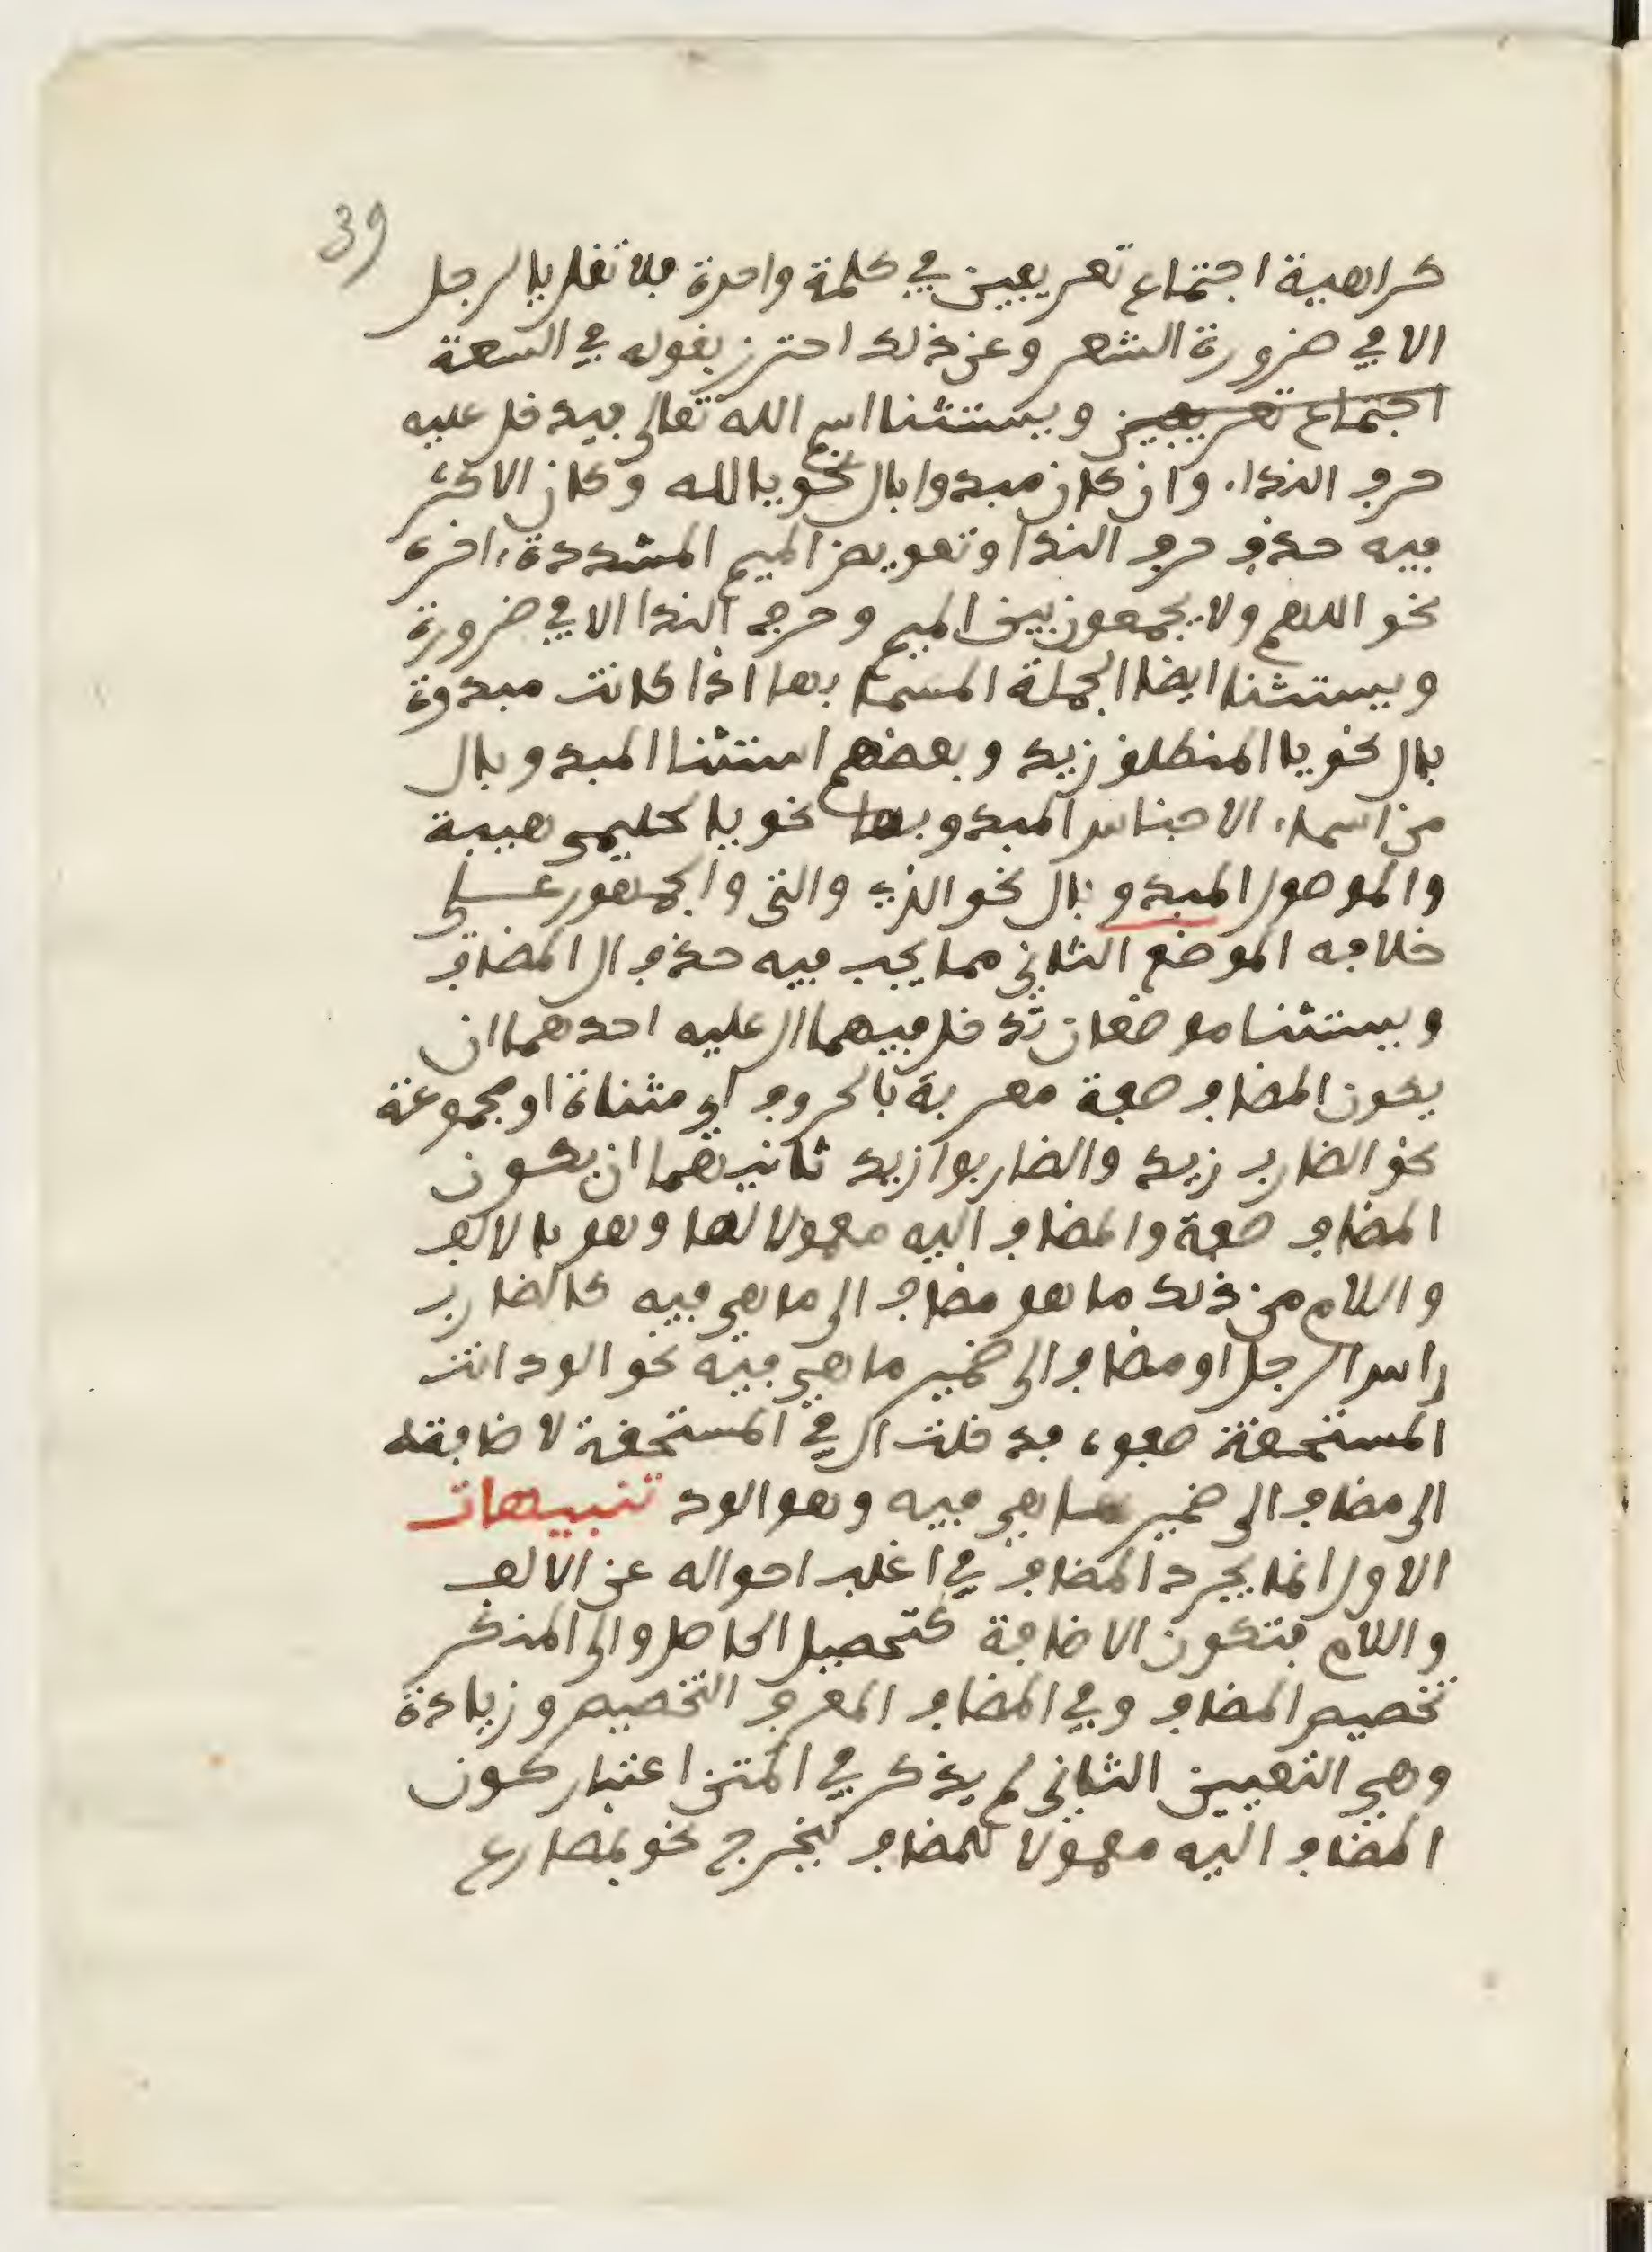 39
كراهية اجتماع تعريفين في كلمة واحدة فلا تقل يا الرجل
الا في ضرورة الشعر وعن ذلك احترز بقوله في السعة
اجتماع تعريفين ويستثنا اسم الله تعالى فيدخل عليه
حرف النداء وان كان مبدوا بال نحو يا الله وكان الاكثر
فيه حذف حرف الندا وتعويض الميم المشددة اخره
نحو اللهم ولا يجمعون بين الميم وحرف الندا الا في ضرورة
ويستثنا ايضا الجملة المسما بها اذا كانت مبدوة
بال نحو يا المنطلق زيد وبعضهم استثنا المبدو بال
من اسماء الاجناس المبدو بها نحو يا هيبة
والموصول المبدو بال نحو الذي والتي والجمهور على
خلافه الموضع الثاني مما يجب فيه حذف ال المضاف
ويستثنا موضعان تدخل فيهما ال عليه احدهما ان
يكون المضاف صفة معربة بالحروف اي مثناة او مجموعة
نحو الضارب زيد والضاربوا زيد ثانيهما ان يكون
المضاف صفة والمضاف اليه معمولا لها وهو بالالف
واللام من ذلك ما هو مضاف الى ما هي فيه كالضارب
راس الرجل او مضاف الى ضمير ما هي فيه نحو الود انت
المستحقة صفوه فدخلت ال في المستحقة لاضافته
الى مضاف الى ضمير ما هي فيه وهو الود تنبيهات
الاول انما يجرد المضاف في اغلب احواله عن الالف
واللام فتكون الاضافة كتحصيل الحاصل والى المنكر
تخصيص المضاف وفي المضاف المعرف التخصيص وزيادة
وهي التعيين الثاني لم يذكر في المتن اعتبار كون
المضاف اليه معمولا للمضاف ليخرج نحو بمضارع